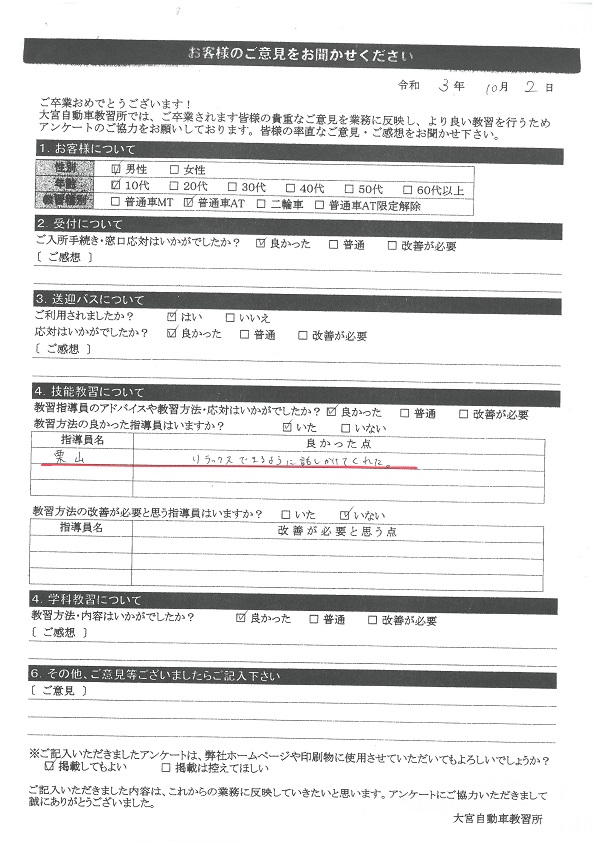 お客様のご意見をお聞かせください
令和 3年 10月 2日
ご卒業おめでとうございます！
大宮自動車教習所では、ご卒業されます皆様の貴重なご意見を業務に反映し、より良い教習を行うため
アンケートのご協力をお願いしております。皆様の率直なご意見・ご感想をお聞かせ下さい。
1. お客様について
性別 ☑男性 □女性
年齢 ☑10代 □20代 □30代 □40代 □50代 □60代以上
教習種別 □普通車MT ☑普通車AT □二輪車 □普通車AT限定解除
2. 受付について
ご入所手続き・窓口応対はいかがでしたか？ ☑良かった □普通 □改善が必要
〔 ご感想 〕
3. 送迎バスについて
ご利用されましたか？ ☑はい □いいえ
応対はいかがでしたか？ ☑良かった □普通 □改善が必要
〔 ご感想 〕
4. 技能教習について
教習指導員のアドバイスや教習方法・応対はいかがでしたか？ ☑良かった □普通 □改善が必要
教習方法の良かった指導員はいますか？ ☑いた □いない
指導員名 良かった点
栗山 リラックスできるように話しかけてくれた。
教習方法の改善が必要と思う指導員はいますか？ □いた ☑いない
指導員名 改善が必要と思う点
4. 学科教習について
教習方法・内容はいかがでしたか？ ☑良かった □普通 □改善が必要
〔 ご感想 〕
6. その他、ご意見等ございましたらご記入下さい
〔 ご意見 〕
※ご記入いただきましたアンケートは、弊社ホームページや印刷物に使用させていただいてもよろしいでしょうか？
☑掲載してもよい □掲載は控えてほしい
ご記入いただきました内容は、これからの業務に反映していきたいと思います。アンケートにご協力いただきまして
誠にありがとうございました。
大宮自動車教習所